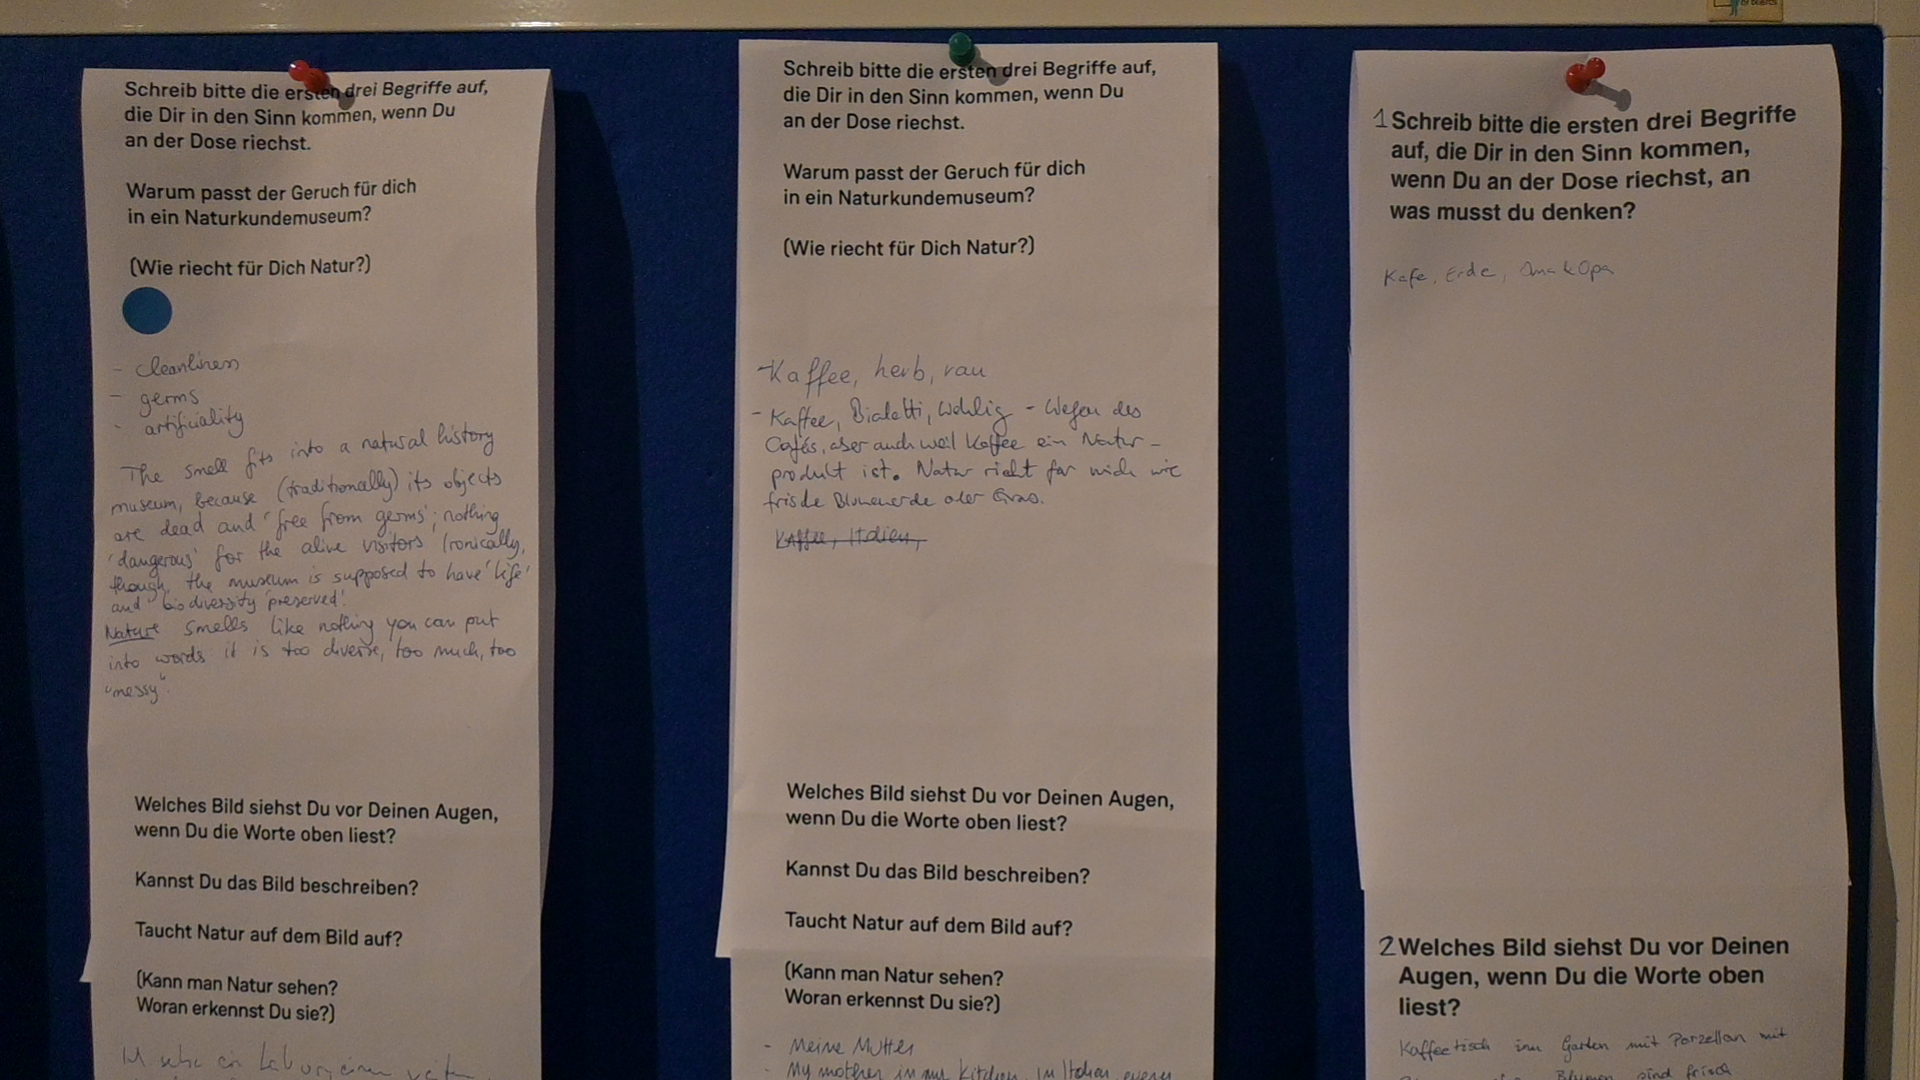 Schreib bitte die ersten drei Begriffe auf,
die Dir in den Sinn kommen, wenn Du
an der Dose riechst.
Warum passt der Geruch für dich
in ein Naturkundemuseum?
(Wie riecht für Dich Natur?)
- cleanliness
- germs
- artificiality
The smell fits into a natural history
museum, because (traditionally) its objects
are dead and 'free from germs'; nothing
'dangerous' for the alive visitors Ironically,
though, the museum is supposed to have 'life'
and biodiversity 'preserved'.
Nature smells like nothing you can put
into words it is too diverse, too much, too
"messy".
Welches Bild siehst Du vor Deinen Augen,
wenn Du die Worte oben liest?
Kannst Du das Bild beschreiben?
Taucht Natur auf dem Bild auf?
(Kann man Natur sehen?
Woran erkennst Du sie?)
Ich sehe ein Labor, einen
Schreib bitte die ersten drei Begriffe auf,
die Dir in den Sinn kommen, wenn Du
an der Dose riechst.
Warum passt der Geruch für dich
in ein Naturkundemuseum?
(Wie riecht für Dich Natur?)
- Kaffee, herb, rau
- Kaffee, Bialetti, Wohlig - Wegen des
Cafés, aber auch weil Kaffee ein Natur-
produkt ist. Natur riecht für mich wie
frische Blumenerde oder Gras.
Kaffee, Italien,
Welches Bild siehst Du vor Deinen Augen,
wenn Du die Worte oben liest?
Kannst Du das Bild beschreiben?
Taucht Natur auf dem Bild auf?
(Kann man Natur sehen?
Woran erkennst Du sie?)
- Meine Mutter
- My mother in my Kitchen, in Italien, every
1 Schreib bitte die ersten drei Begriffe
auf, die Dir in den Sinn kommen,
wenn Du an der Dose riechst, an
was musst du denken?
Kafe, Erde, Oma & Opa
2 Welches Bild siehst Du vor Deinen
Augen, wenn Du die Worte oben
liest?
Kaffeetisch im Garten mit Porzellan mit
Blumen sind frisch